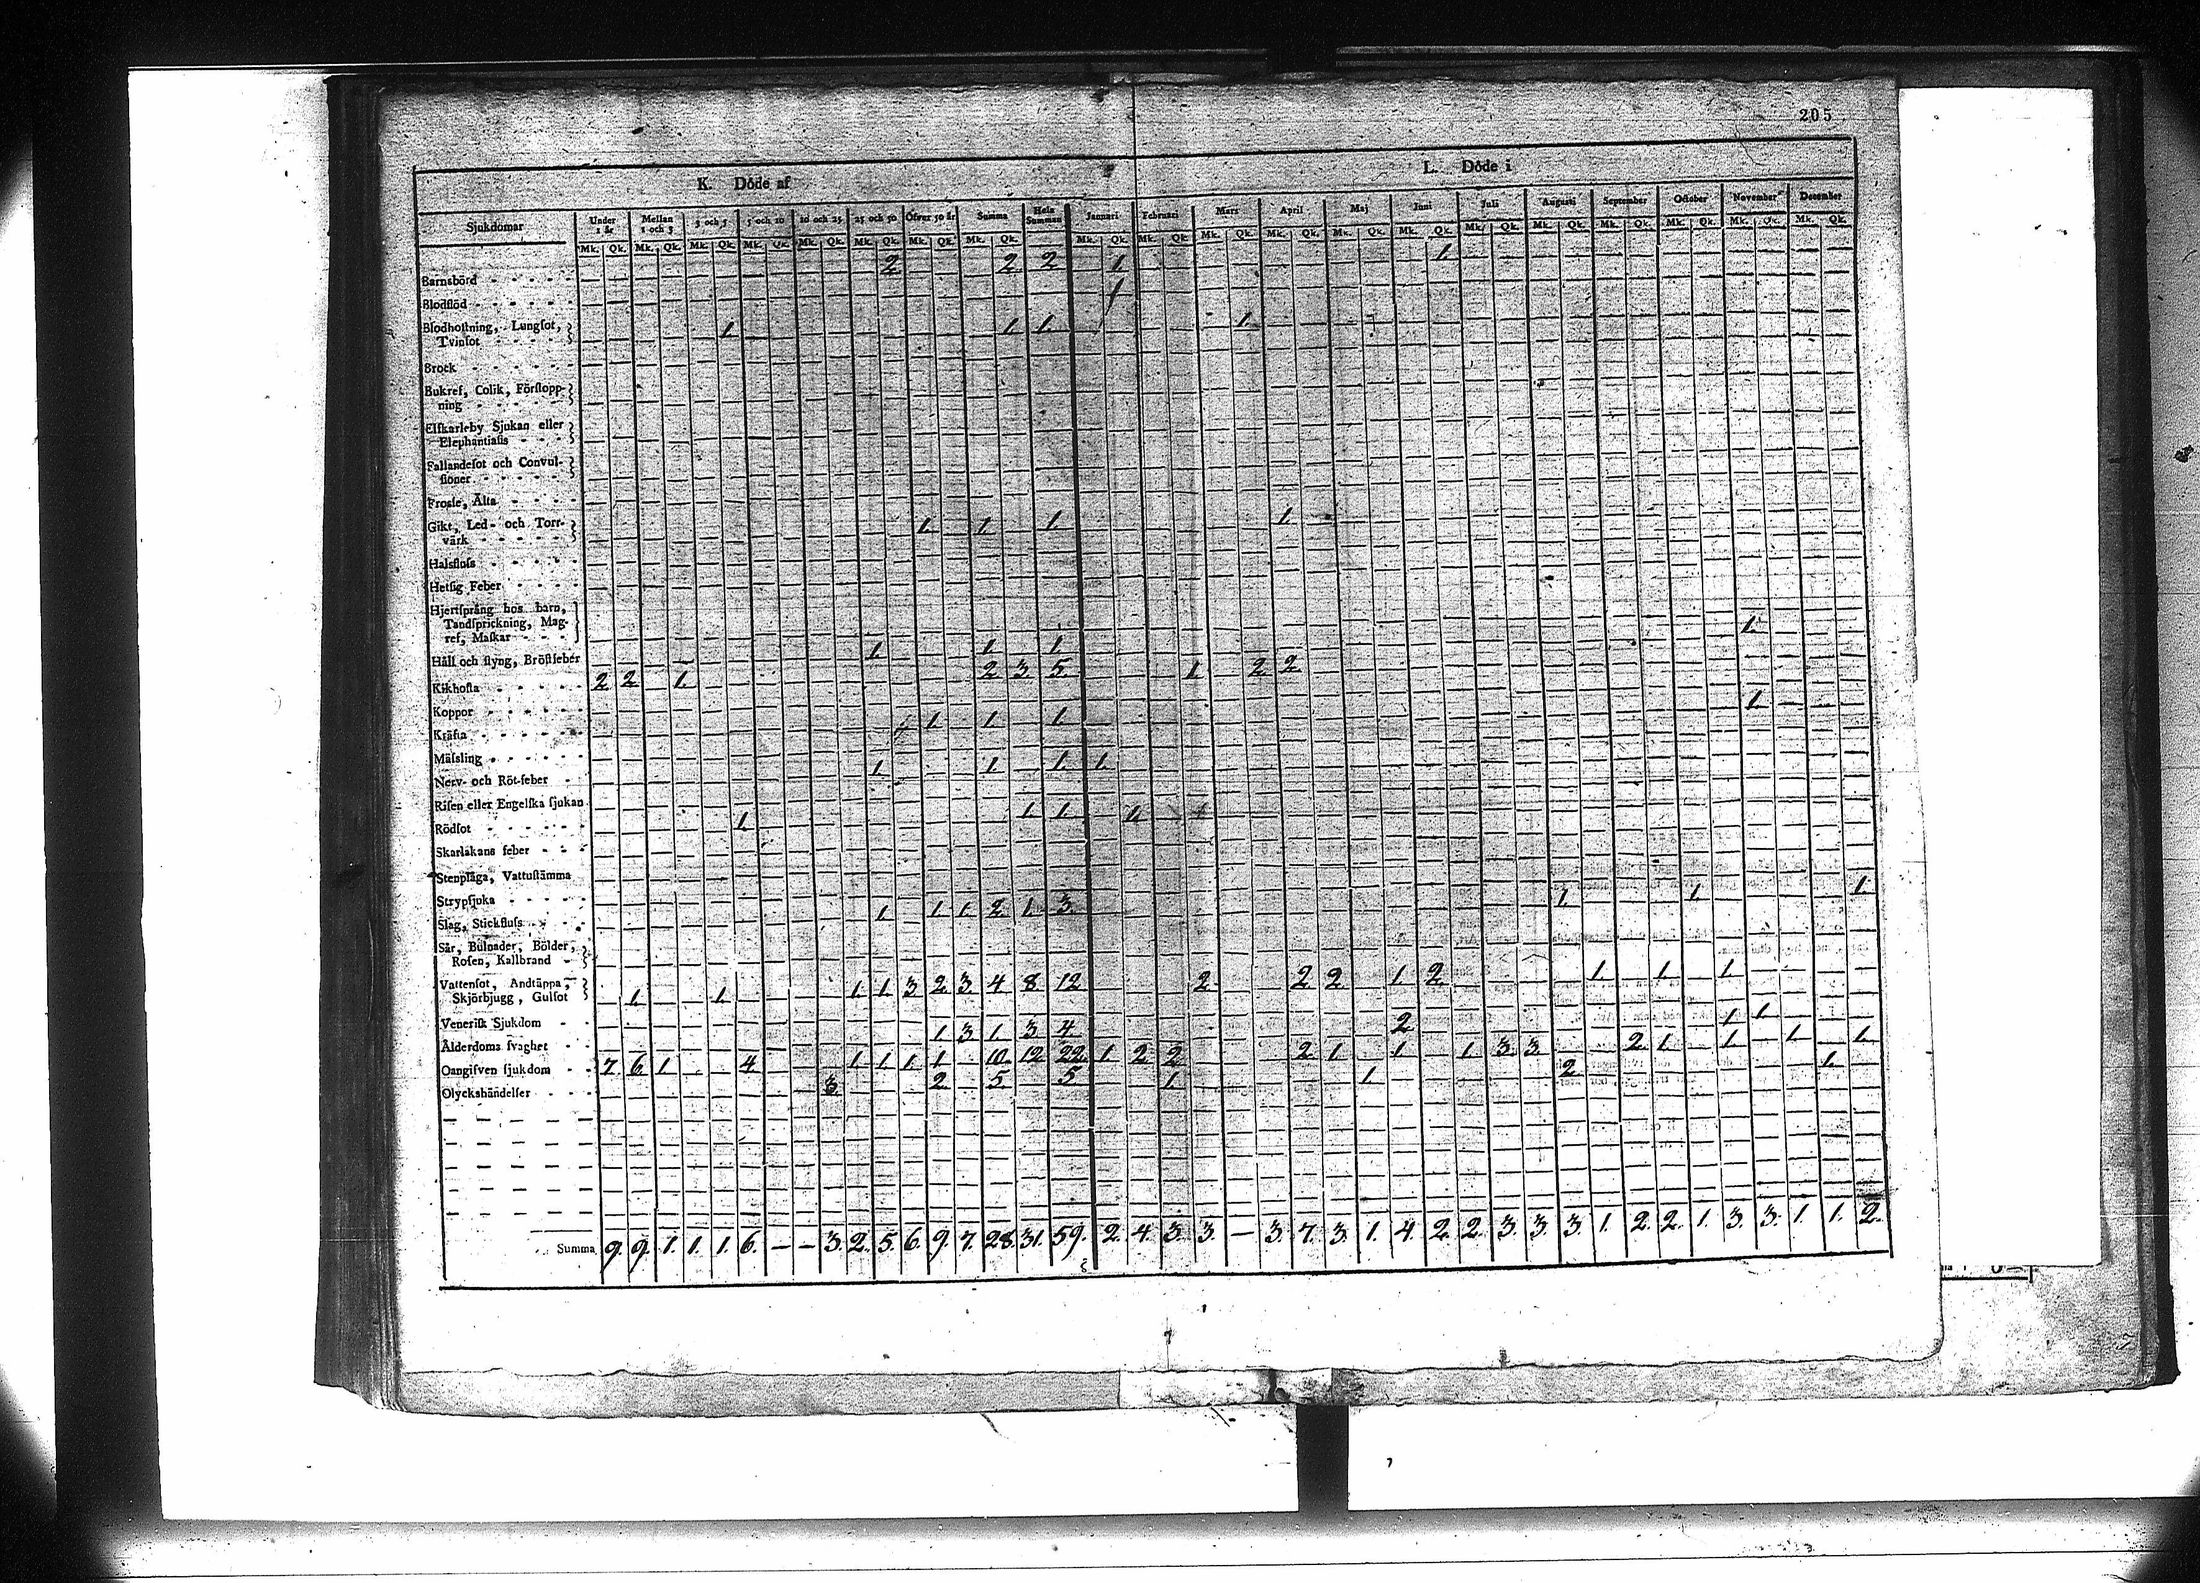 205
K. Döde af L. Döde i
Sjukdomar Under 1 år Mellan 1 och 3 3 och 5 5 och 10 10 och 25 25 och 50 Öfver 50 år Summa Hela Summan Januari Februari Mars April Maj Juni Juli Augusti September October November December
Mk. Qk. Mk. Qk. Mk. Qk. Mk. Qk. Mk. Qk. Mk. Qk. Mk. Qk. Mk. Qk. Mk. Qk. Mk. Qk. Mk. Qk. Mk. Qk. Mk. Qk. Mk. Qk. Mk. Qk. Mk. Qk. Mk. Qk. Mk. Qk. Mk. Qk. Mk. Qk.
Barnsbörd 2 2 2 1. 1.
Blodflöd
Blodhostning, Lungsot, 1. 1. 1. 1.
Tvinsot
Brock
Bukref, Colik, Förstopp-
ning
Elfkarleby Sjukan eller
Elephantiasis
Fallandesot och Convul-
sioner
Frossa, Älta
Gikt, Led- och Torr- 1. 1. 1. 1.
värk
Halsfluss
Hetsig Feber
Hjertsprång hos barn,
Tandsprickning, Mag-
ref, Maskar
Håll och styng, Bröstfeber 1. 1. 1. 1.
Kikhosta 2 2 1. 2 3. 5. 1. 2 2
Koppor
Kräfta 1. 1. 1. 1.
Mässling
Nerv- och Röt-feber 1. 1. 1. 1.
Risen eller Engelska sjukan
Rödsot 1. 1. 1. 1.
Skarlakans feber
Stenplåga, Vattustämma
Strypsjuka
Slag, Stickfluss 1. 1. 1. 2 1. 3. 1. 1. 1.
Sår, Bulnader, Bölder,
Rosen, Kallbrand
Vattensot, Andtäppa, 1. 1. 1. 1. 3 2 3. 4 8 12 2 2 2 1. 2 1. 1. 1.
Skjörbjugg, Gulsot
Venerisk Sjukdom
Ålderdoms svaghet 1. 3 1. 3 4. 2 1. 1.
Oangifven sjukdom 7. 6. 1. 4 1. 1. 1. 1. 10. 12 22. 1. 2 2 2. 1. 1. 1. 3. 3. 2. 1. 1. 1. 1.
Olyckshändelser 3. 2. 5 5 1. 1. 2 1.
Summa 9. 9. 1. 1. 1. 6. — — 3. 2. 5. 6. 9. 7. 28. 31. 59. 2. 4. 3. 3. — 3. 7. 3. 1. 4. 2. 2. 3. 3. 3. 1. 2. 2. 1. 3. 3. 1. 1. 2.